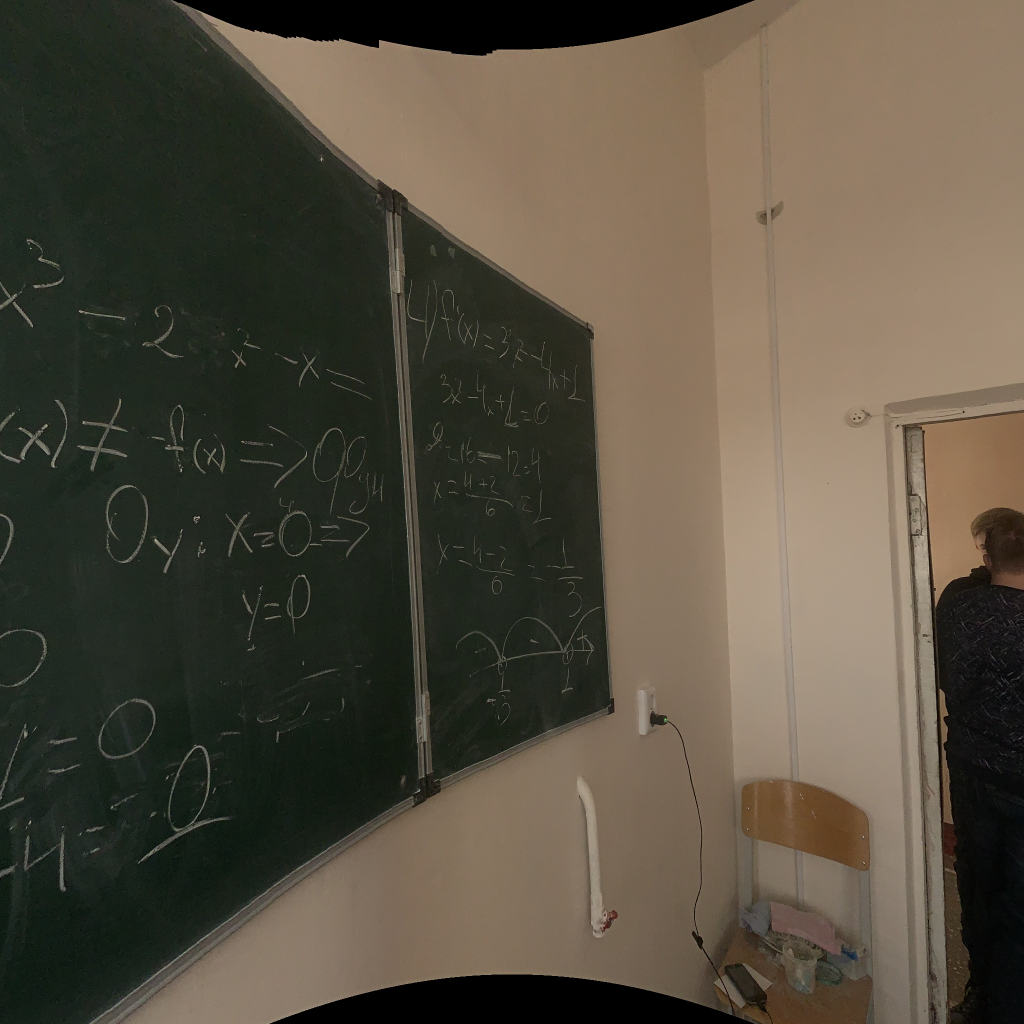 x³ - 2x² - x =
(x) ≠ -f(x) =>
Oy: x = 0 =>
y = 0
= 0
-4 = 0
4) f'(x) = 3x² - 4x + 1
3x² - 4x + 1 = 0
D = 16 - 12 = 4
x = (4+2)/6 = 1
x = (4-2)/6 = 1/3
- +
1/3 1